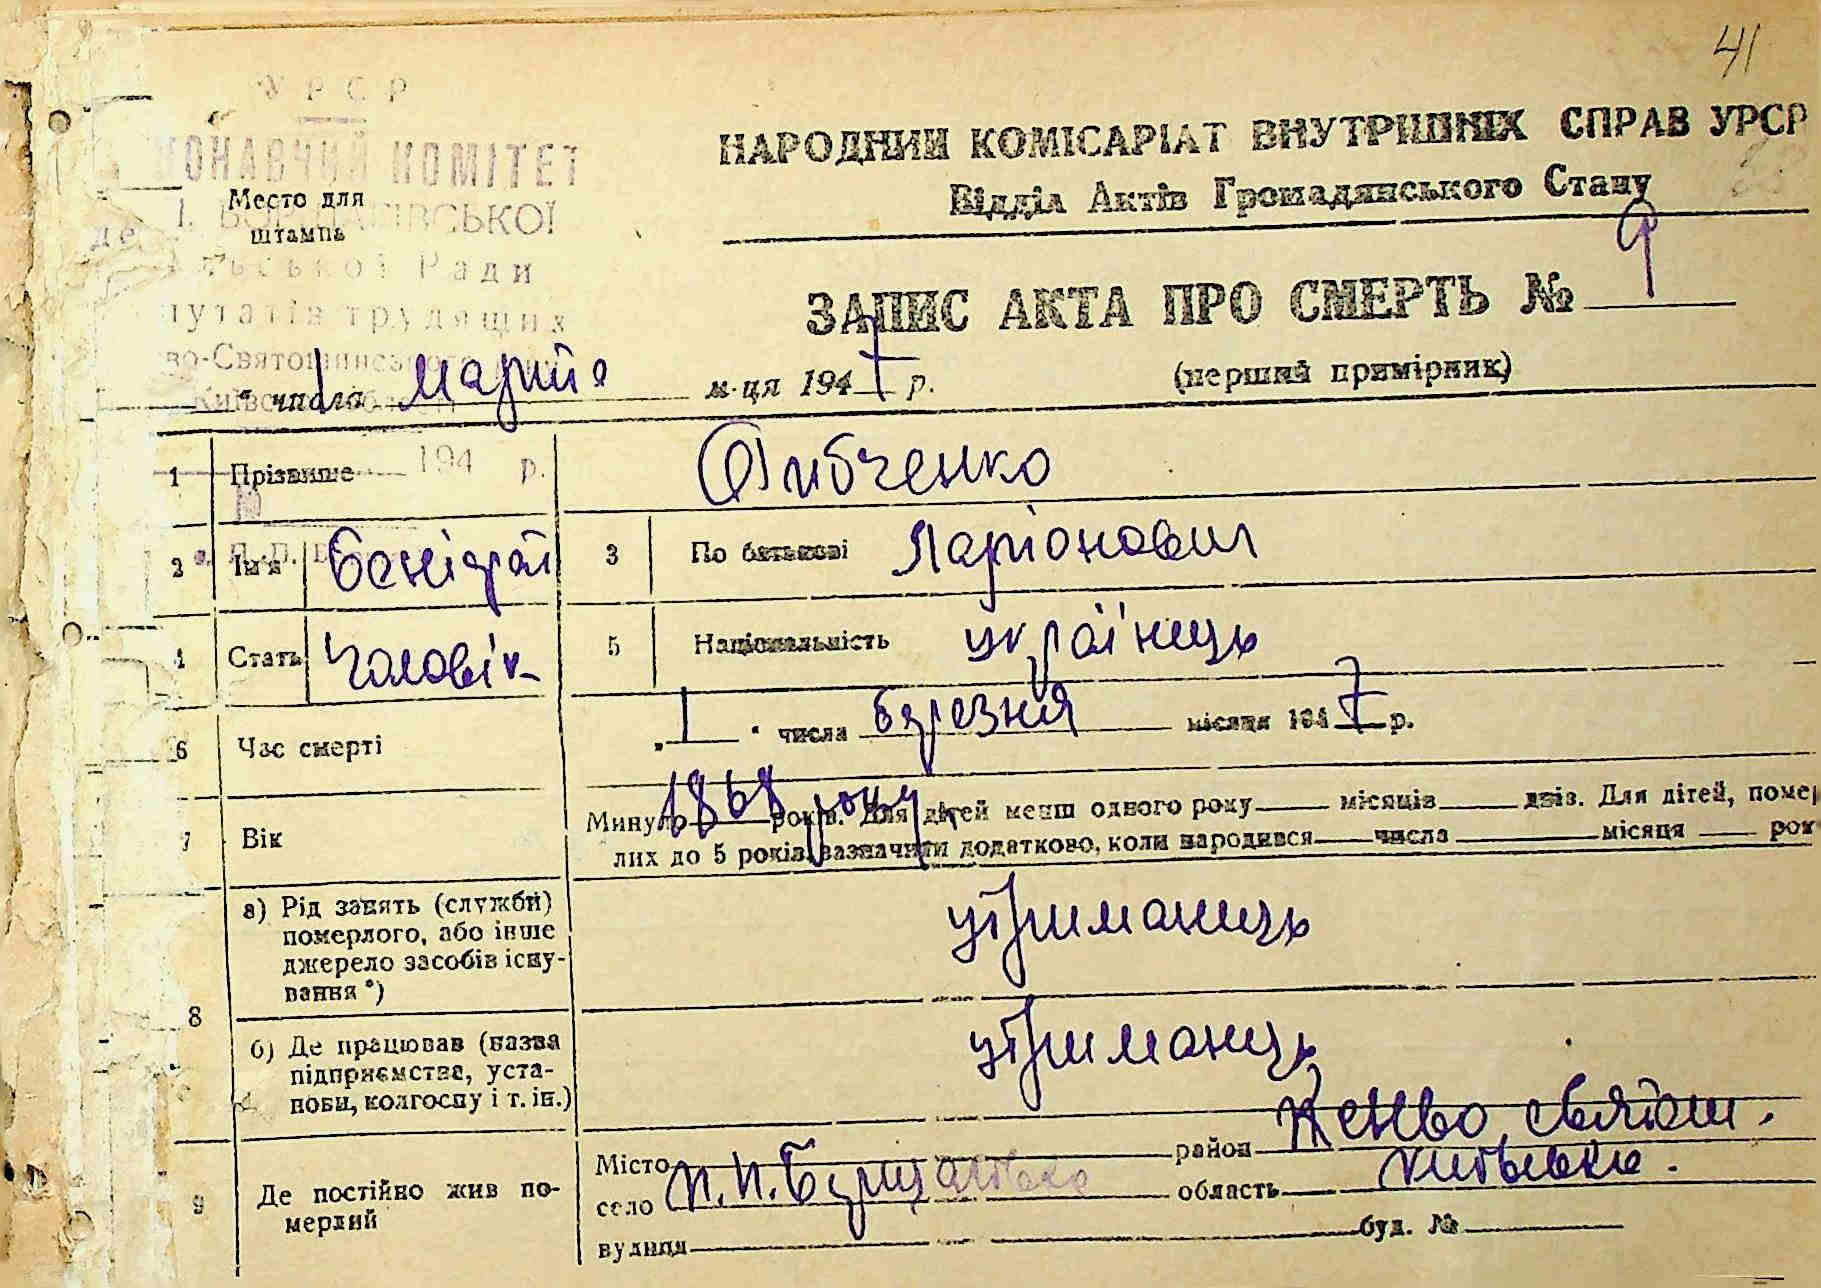 41
УРСР
КОНАВЧИЙ КОМІТЕТ
НАРОДНИЙ КОМІСАРІАТ ВНУТРІШНІХ СПРАВ УРСР
Відділ Актів Громадянського Стану
Место для
штампа
Ради
путатів трудящих
во-Святошинс
ЗАПИС АКТА ПРО СМЕРТЬ № 9
(перший примірник)
1 числа м-ця 1947 р.
194 р.
1 Прізвище
2 Ім'я
3 По батькові Ларіонович
4 Стать Чоловік
5 Національність українець
6 Час смерті „1" числа березня місяця 1947 р.
7 Вік Минуло 1868 року років. Для дітей менш одного року місяців днів. Для дітей, помер
лих до 5 років, зазначити додатково, коли народився числа місяця рок
8 а) Рід занять (служби)
померлого, або інше
джерело засобів існу-
вання *)
утриманець
б) Де працював (назва
підприємства, уста-
нови, колгоспу і т. ін.)
утриманець
9 Де постійно жив по-
мерлий
Місто район святош.
село П. П. Борщагівка область
вулиця буд. №